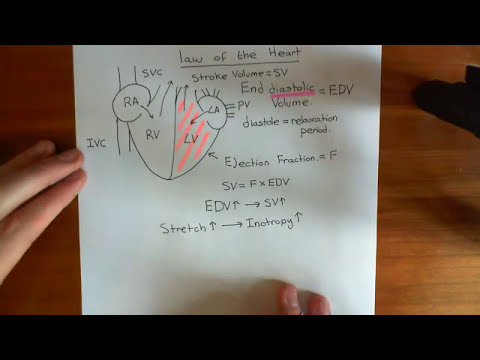 Law of the Heart
SVC
Stroke Volume = SV
End diastolic = EDV
Volume.
RA
LA
PV
diastole = relaxation
period.
RV
LV
IVC
Ejection Fraction = F
SV = F × EDV
EDV↑ → SV↑
Stretch ↑ → Inotropy ↑